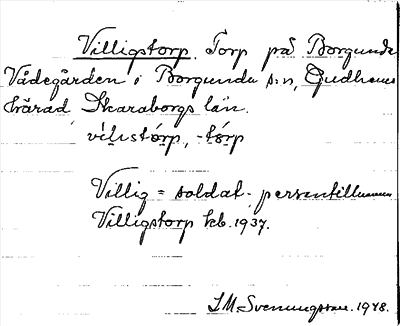 Villigstorp. Torp på Borgunda
Vådegården i Borgunda s:n, Gudhems
härad Skaraborgs län.
-torp
Villig = soldat- persontillnamn
Villigstorp kb. 1937.
I.M. Svenungsson. 1978.